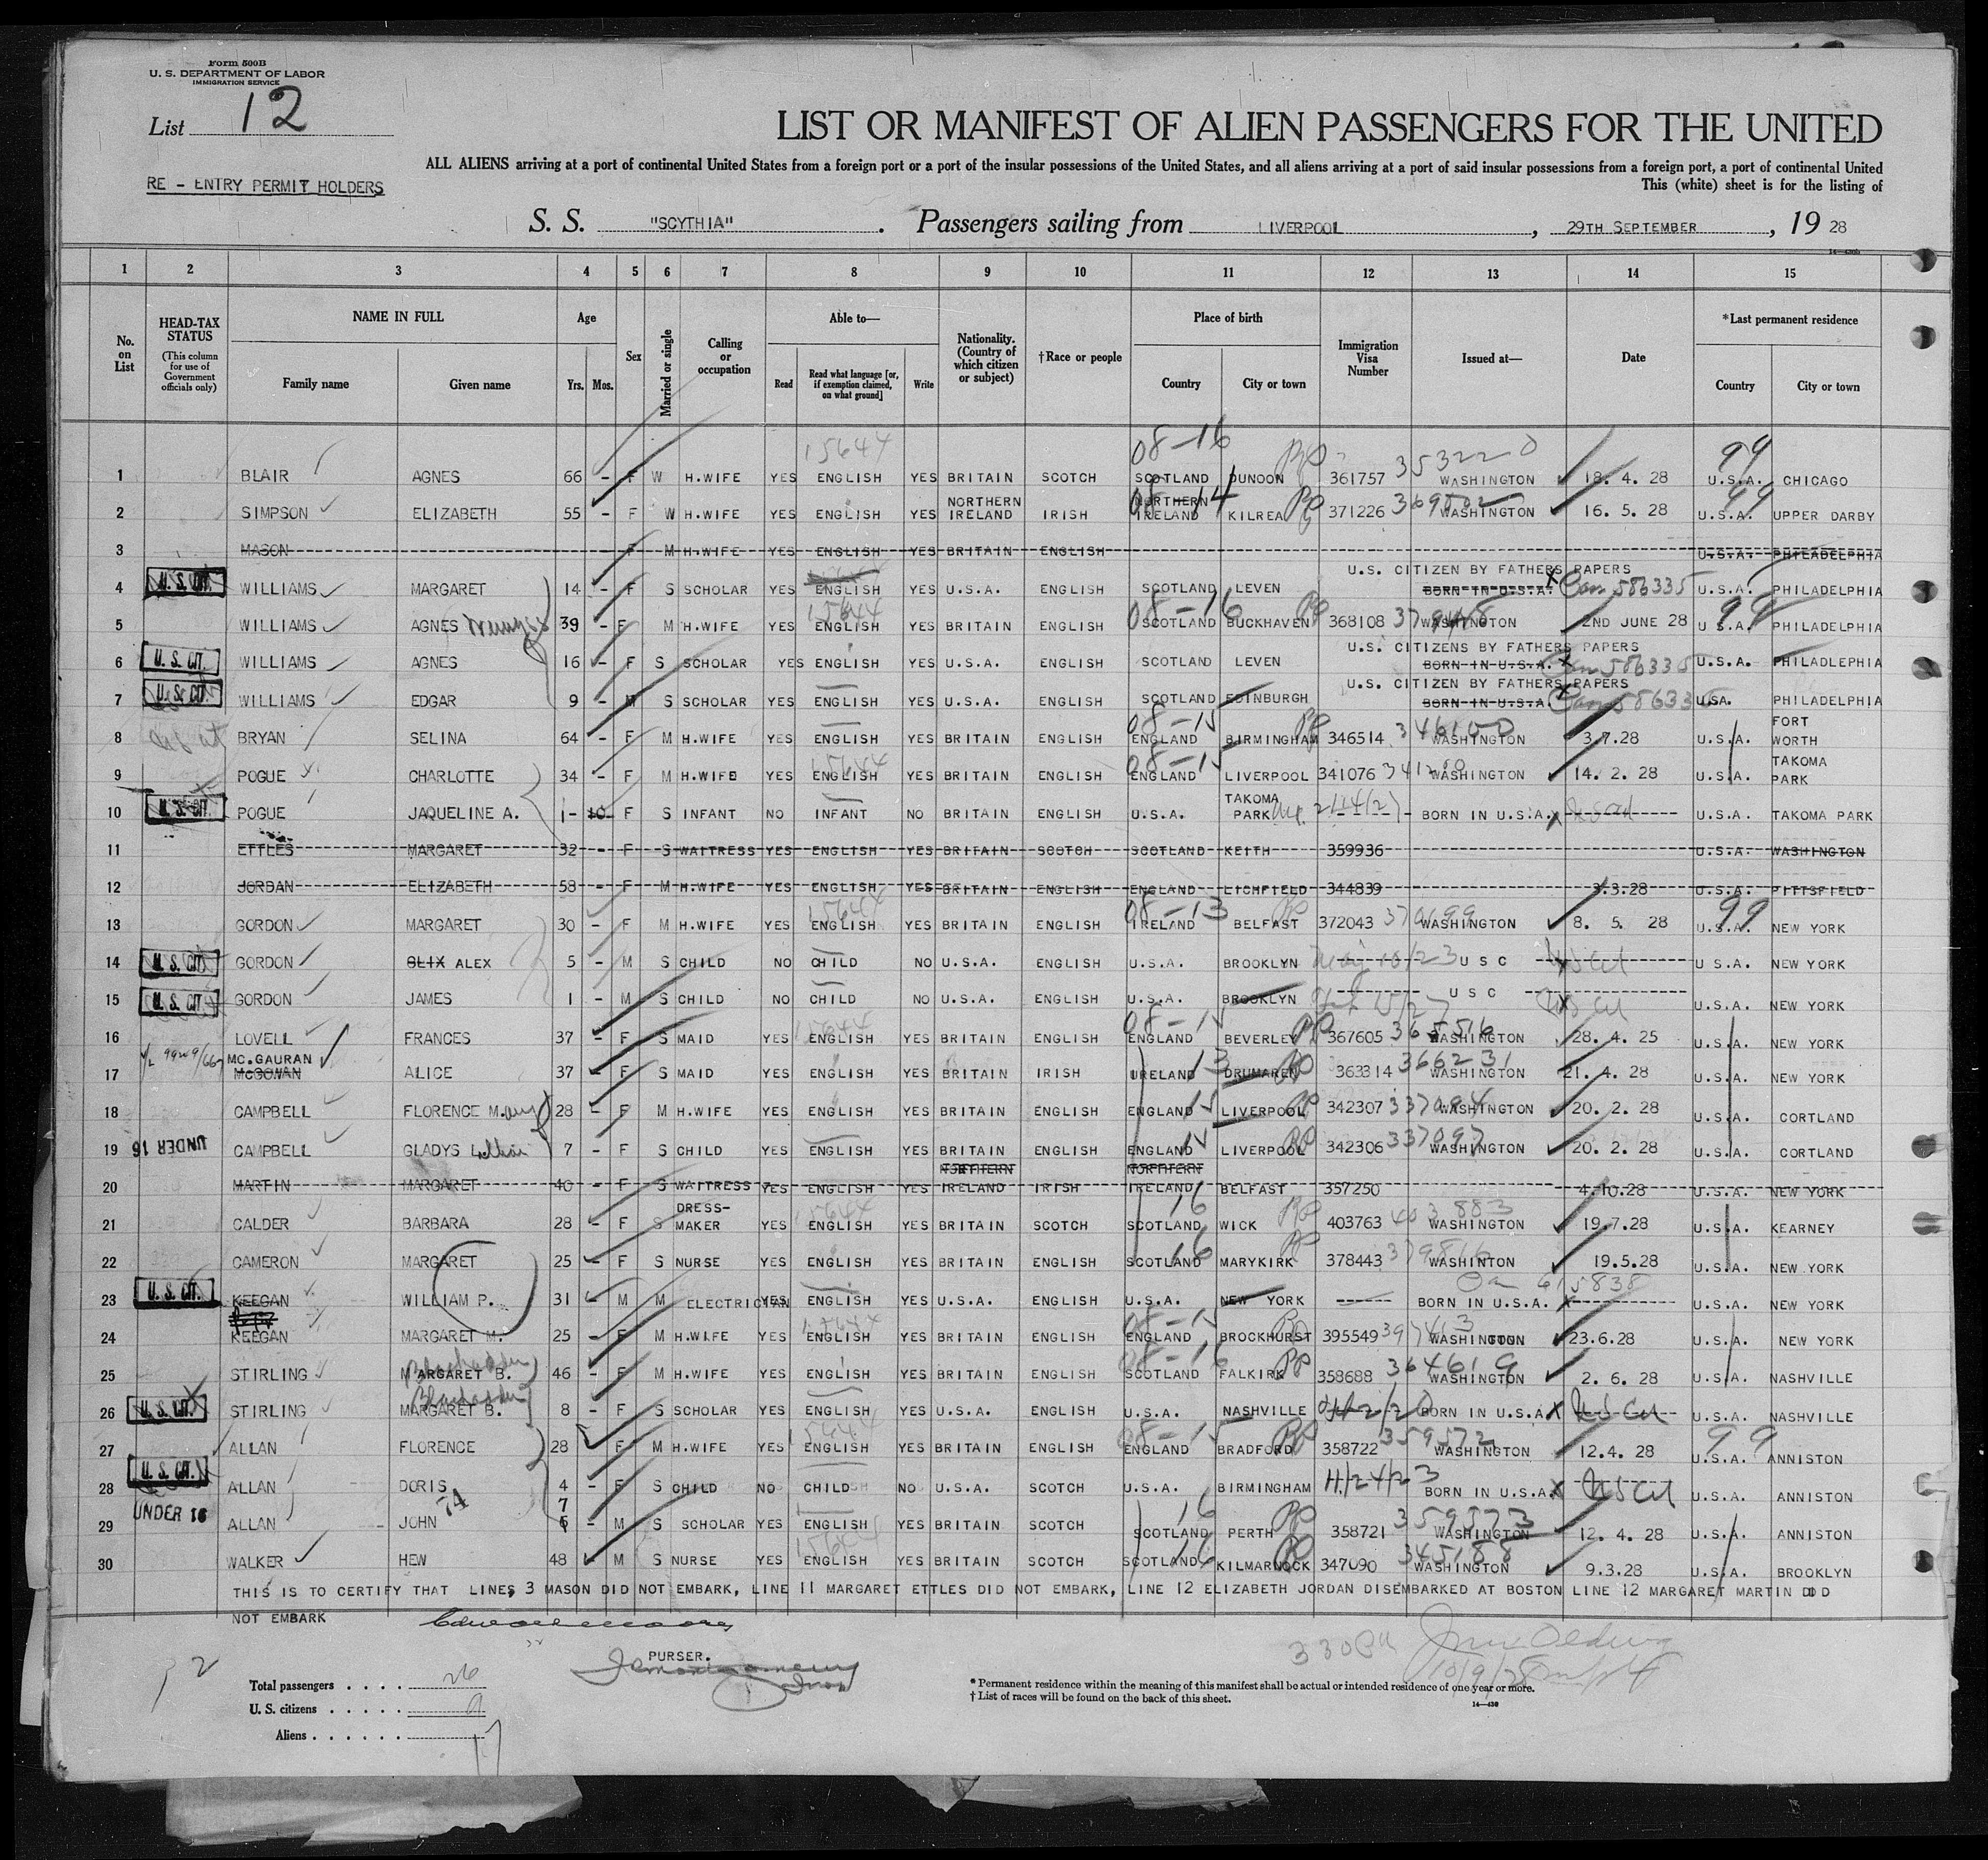 Form 500B
U. S. DEPARTMENT OF LABOR
IMMIGRATION SERVICE
List 12
LIST OR MANIFEST OF ALIEN PASSENGERS FOR THE UNITED
ALL ALIENS arriving at a port of continental United States from a foreign port or a port of the insular possessions of the United States, and all aliens arriving at a port of said insular possessions from a foreign port, a port of continental United
RE - ENTRY PERMIT HOLDERS
This (white) sheet is for the listing of
S. S. "SCYTHIA". Passengers sailing from LIVERPOOL, 29TH SEPTEMBER, 19 28
1 2 3 4 5 6 7 8 9 10 11 12 13 14 15
No. on List
HEAD-TAX STATUS (This column for use of Government officials only)
NAME IN FULL Family name Given name
Age Yrs. Mos.
Sex
Married or single
Calling or occupation
Able to— Read Read what language [or, if exemption claimed, on what ground] Write
Nationality. (Country of which citizen or subject)
†Race or people
Place of birth Country City or town
Immigration Visa Number
Issued at—
Date
*Last permanent residence Country City or town
1 BLAIR AGNES 66 - F W H.WIFE YES ENGLISH YES BRITAIN SCOTCH SCOTLAND DUNOON 361757 353220 WASHINGTON 18. 4. 28 U.S.A. CHICAGO
2 SIMPSON ELIZABETH 55 - F W H.WIFE YES ENGLISH YES NORTHERN IRELAND IRISH NORTHERN IRELAND KILREA 371226 WASHINGTON 16. 5. 28 U.S.A. UPPER DARBY
3 MASON F M H.WIFE YES ENGLISH YES BRITAIN ENGLISH U.S.A. PHILADELPHIA
4 U. S. CIT. WILLIAMS MARGARET 14 - F S SCHOLAR YES ENGLISH YES U.S.A. ENGLISH SCOTLAND LEVEN U.S. CITIZEN BY FATHERS PAPERS BORN IN U.S.A. 586335 U.S.A. PHILADELPHIA
5 WILLIAMS AGNES 39 - F M H.WIFE YES ENGLISH YES BRITAIN ENGLISH SCOTLAND BUCKHAVEN 368108 WASHINGTON 2ND JUNE 28 U S.A. PHILADELPHIA
6 U. S. CIT. WILLIAMS AGNES 16 - F S SCHOLAR YES ENGLISH YES U.S.A. ENGLISH SCOTLAND LEVEN U.S. CITIZENS BY FATHERS PAPERS BORN IN U.S.A. 586335 U.S.A. PHILADLEPHIA
7 U. S. CIT. WILLIAMS EDGAR 9 - M S SCHOLAR YES ENGLISH YES U.S.A. ENGLISH SCOTLAND EDINBURGH U.S. CITIZEN BY FATHERS PAPERS BORN IN U.S.A 586335 U.SA. PHILADELPHIA
8 BRYAN SELINA 64 - F M H.WIFE YES ENGLISH YES BRITAIN ENGLISH ENGLAND BIRMINGHAM 346514 346100 WASHINGTON 3.7.28 U.S.A. FORT WORTH
9 POGUE CHARLOTTE 34 - F M H.WIFE YES ENGLISH YES BRITAIN ENGLISH ENGLAND LIVERPOOL 341076 WASHINGTON 14. 2. 28 U.S.A. TAKOMA PARK
10 U. S. CIT. POGUE JAQUELINE A. 1- 10- F S INFANT NO INFANT NO BRITAIN ENGLISH U.S.A. TAKOMA PARK BORN IN U.S.A. U.S.A. TAKOMA PARK
11 ETTLES MARGARET 32 - F S WAITRESS YES ENGLISH YES BRITAIN SCOTCH SCOTLAND KEITH 359936 U.S.A. WASHINGTON
12 JORDAN ELIZABETH 58 - F M H.WIFE YES ENGLISH YES BRITAIN ENGLISH ENGLAND LICHFIELD 344839 3.3.28 U.S.A. PITTSFIELD
13 GORDON MARGARET 30 - F M H.WIFE YES ENGLISH YES BRITAIN ENGLISH IRELAND BELFAST 372043 WASHINGTON 8. 5. 28 U.S.A. NEW YORK
14 U. S. CIT GORDON OLIX ALEX 5 - M S CHILD NO CHILD NO U.S.A. ENGLISH U.S.A. BROOKLYN U S C U S.A. NEW YORK
15 U. S. CIT GORDON JAMES 1 - M S CHILD NO CHILD NO U.S.A. ENGLISH U.S.A. BROOKLYN U S C U.S.A. NEW YORK
16 LOVELL FRANCES 37 - F S MAID YES ENGLISH YES BRITAIN ENGLISH ENGLAND BEVERLEY 367605 WASHINGTON 28. 4. 25 U.S.A. NEW YORK
17 MC.GAURAN MCGOWAN ALICE 37 - F S MAID YES ENGLISH YES BRITAIN IRISH IRELAND DRUMAREN 363314 366231 WASHINGTON 21. 4. 28 U.S.A. NEW YORK
18 CAMPBELL FLORENCE M. 28 - F M H.WIFE YES ENGLISH YES BRITAIN ENGLISH ENGLAND LIVERPOOL 342307 WASHINGTON 20. 2. 28 U.S.A. CORTLAND
19 UNDER 16 CAMPBELL GLADYS Lillian 7 - F S CHILD YES ENGLISH YES BRITAIN ENGLISH ENGLAND LIVERPOOL 342306 337097 WASHINGTON 20. 2. 28 U.S.A. CORTLAND
20 MARTIN MARGARET 40 - F S WAITRESS YES ENGLISH YES NORTHERN IRELAND IRISH NORTHERN IRELAND BELFAST 357250 4.10.28 U.S.A. NEW YORK
21 CALDER BARBARA 28 - F S DRESS- MAKER YES ENGLISH YES BRITAIN SCOTCH SCOTLAND WICK 403763 403883 WASHINGTON 19.7.28 U.S.A. KEARNEY
22 CAMERON MARGARET 25 - F S NURSE YES ENGLISH YES BRITAIN ENGLISH SCOTLAND MARYKIRK 378443 WASHINTON 19.5.28 U.S.A. NEW YORK
23 U. S. CIT. KEEGAN WILLIAM P. 31 - M M ELECTRICIAN YES ENGLISH YES U.S.A. ENGLISH U.S.A. NEW YORK BORN IN U.S.A. 615838 U.S.A. NEW YORK
24 KEEGAN MARGARET M. 25 - F M H.WIFE YES ENGLISH YES BRITAIN ENGLISH ENGLAND BROCKHURST 395549 397413 WASHINGTON 23.6.28 U.S.A. NEW YORK
25 STIRLING MARGARET B. 46 - F M H.WIFE YES ENGLISH YES BRITAIN ENGLISH SCOTLAND FALKIRK 358688 364619 WASHINGTON 2. 6. 28 U.S.A. NASHVILLE
26 U. S. CIT. STIRLING MARGARET B. 8 - F S SCHOLAR YES ENGLISH YES U.S.A. ENGLISH U.S.A. NASHVILLE BORN IN U.S.A U.S.A. NASHVILLE
27 ALLAN FLORENCE 28 - F M H.WIFE YES ENGLISH YES BRITAIN ENGLISH ENGLAND BRADFORD 358722 359572 WASHINGTON 12.4. 28 U.S.A. ANNISTON
28 U. S. CIT. ALLAN DORIS 4 - F S CHILD NO CHILD NO U.S.A. SCOTCH U.S.A. BIRMINGHAM 11/24/23 BORN IN U.S.A. U.S.A. ANNISTON
29 UNDER 16 ALLAN JOHN 7 6 - M S SCHOLAR YES ENGLISH YES BRITAIN SCOTCH SCOTLAND PERTH 358721 359573 WASHINGTON 12. 4. 28 U.S.A. ANNISTON
30 WALKER HEW 48 - M S NURSE YES ENGLISH YES BRITAIN SCOTCH SCOTLAND KILMARNOCK 347090 345188 WASHINGTON 9.3.28 U.S.A. BROOKLYN
THIS IS TO CERTIFY THAT LINES 3 MASON DID NOT EMBARK, LINE 11 MARGARET ETTLES DID NOT EMBARK, LINE 12 ELIZABETH JORDAN DISEMBARKED AT BOSTON LINE 12 MARGARET MARTIN DID
NOT EMBARK
PURSER.
Total passengers . . . . 26
U. S. citizens . . . . . 9
Aliens . . . . . . 17
* Permanent residence within the meaning of this manifest shall be actual or intended residence of one year or more.
† List of races will be found on the back of this sheet.
14—430